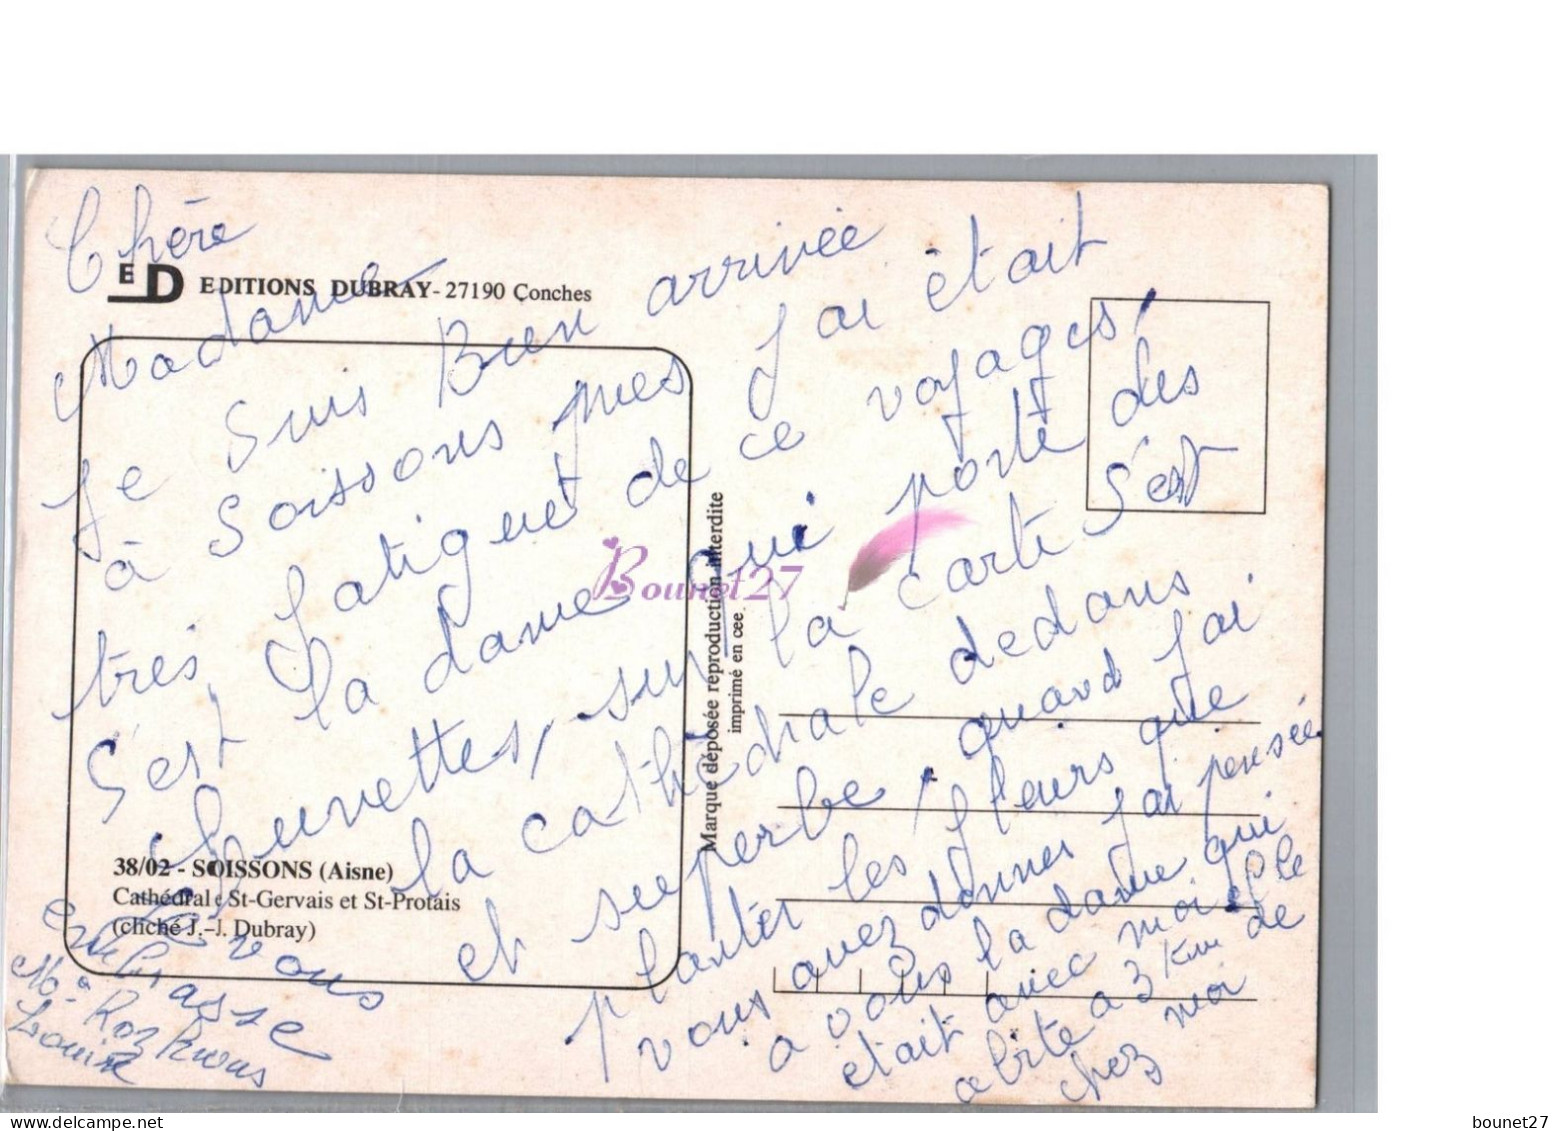 Chère
Madame
Je suis Bien arrivée
à Soissons mes J'ai était
très fatiguet de ce voyages,
S'est la dame qui porte des
lunettes, sur la carte S'est
la cathédrale dedans
et seeperbe, quand J'ai
planter les fleurs que
vous avez donner J'ai pensée
a vous la dame qui
était avec moi Elle
abite a 3 Km de
chez moi
Je vous
embrasse
Louise
ED EDITIONS DUBRAY - 27190 Conches
38/02 - SOISSONS (Aisne)
Cathédrale St-Gervais et St-Protais
(cliché J.-J. Dubray)
Marque déposée reproduction interdite
imprimé en cee.
Bounet27
www.delcampe.net
bounet27